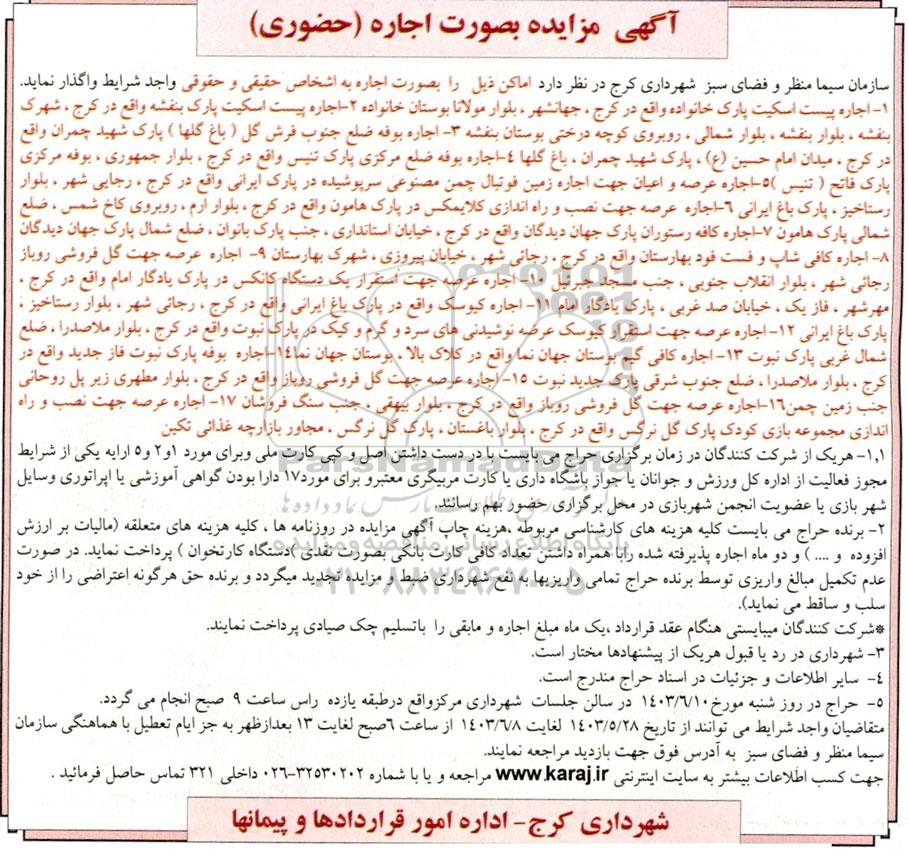 آگهی مزایده بصورت اجاره (حضوری)
سازمان سیما منظر و فضای سبز شهرداری کرج در نظر دارد اماکن ذیل را بصورت اجاره به اشخاص حقیقی و حقوقی واجد شرایط واگذار نماید.
۱- اجاره پیست اسکیت پارک خانواده واقع در کرج ، جهانشهر ، بلوار مولانا بوستان خانواده ۲-اجاره پیست اسکیت پارک بنفشه واقع در کرج ، شهرک
بنفشه ، بلوار بنفشه ، بلوار شمالی ، روبروی کوچه درختی بوستان بنفشه ۳- اجاره بوفه ضلع جنوب فرش گل ( باغ گلها ) پارک شهید چمران واقع
در کرج ، میدان امام حسین (ع) ، پارک شهید چمران ، باغ گلها ۴-اجاره بوفه ضلع مرکزی پارک تنیس واقع در کرج ، بلوار جمهوری ، بوفه مرکزی
پارک فاتح ( تنیس )۵-اجاره عرصه و اعیان جهت اجاره زمین فوتبال چمن مصنوعی سرپوشیده در پارک ایرانی واقع در کرج ، رجایی شهر ، بلوار
رستاخیز ، پارک باغ ایرانی ۶-اجاره عرصه جهت نصب و راه اندازی کلایمکس در پارک هامون واقع در کرج ، بلوار ارم ، روبروی کاخ شمس ، ضلع
شمالی پارک هامون ۷-اجاره کافه رستوران پارک جهان دیدگان واقع در کرج ، خیابان استانداری ، جنب پارک بانوان ، ضلع شمال پارک جهان دیدگان
۸- اجاره کافی شاپ و فست فود بهارستان واقع در کرج ، رجائی شهر ، خیابان پیروزی ، شهرک بهارستان ۹- اجاره عرصه جهت گل فروشی روباز
رجائی شهر ، بلوار انقلاب جنوبی ، جنب مسجد جبرئیل ۱۰- اجاره عرصه جهت استقرار یک دستگاه کانکس در پارک یادگار امام واقع در کرج ،
مهرشهر ، فاز یک ، خیابان صد غربی ، پارک یادگار امام ۱۱- اجاره کیوسک واقع در پارک باغ ایرانی واقع در کرج ، رجائی شهر ، بلوار رستاخیز ،
پارک باغ ایرانی ۱۲- اجاره عرصه جهت استقرار کیوسک عرضه نوشیدنی های سرد و گرم و کیک در پارک نبوت واقع در کرج ، بلوار ملاصدرا ، ضلع
شمال غربی پارک نبوت ۱۳- اجاره کافی گیم بوستان جهان نما واقع در کلاک بالا ، بوستان جهان نما۱۴-اجاره بوفه پارک نبوت فاز جدید واقع در
کرج ، بلوار ملاصدرا ، ضلع جنوب شرقی پارک جدید نبوت ۱۵- اجاره عرصه جهت گل فروشی روباز واقع در کرج ، بلوار مطهری زیر پل روحانی
جنب زمین چمن۱۶-اجاره عرصه جهت گل فروشی روباز واقع در کرج ، بلوار بیهقی ، جنب سنگ فروشان ۱۷- اجاره عرصه جهت نصب و راه
اندازی مجموعه بازی کودک پارک گل نرگس واقع در کرج ، بلوار باغستان ، پارک گل نرگس ، مجاور بازارچه غذائی تکین
۱,۱- هریک از شرکت کنندگان در زمان برگزاری حراج می بایست با در دست داشتن اصل و کپی کارت ملی وبرای مورد ۱و۲ و۵ ارایه یکی از شرایط
مجوز فعالیت از اداره کل ورزش و جوانان یا جواز باشگاه داری یا کارت مربیگری معتبرو برای مورد۱۷ دارا بودن گواهی آموزشی یا اپراتوری وسایل
شهر بازی یا عضویت انجمن شهربازی در محل برگزاری حضور بهم رسانند.
۲- برنده حراج می بایست کلیه هزینه های کارشناسی مربوطه ،هزینه چاپ آگهی مزایده در روزنامه ها ، کلیه هزینه های متعلقه (مالیات بر ارزش
افزوده و .... ) و دو ماه اجاره پذیرفته شده رابا همراه داشتن تعداد کافی کارت بانکی بصورت نقدی )دستگاه کارتخوان ) پرداخت نماید. در صورت
عدم تکمیل مبالغ واریزی توسط برنده حراج تمامی واریزیها به نفع شهرداری ضبط و مزایده تجدید میگردد و برنده حق هرگونه اعتراضی را از خود
سلب و ساقط می نماید).
*شرکت کنندگان میبایستی هنگام عقد قرارداد ،یک ماه مبلغ اجاره و مابقی را باتسلیم چک صیادی پرداخت نمایند.
۳- شهرداری در رد یا قبول هریک از پیشنهادها مختار است.
۴- سایر اطلاعات و جزئیات در اسناد حراج مندرج است.
۵- حراج در روز شنبه مورخ ۱۴۰۳/۶/۱۰ در سالن جلسات شهرداری مرکزواقع درطبقه یازده راس ساعت ۹ صبح انجام می گردد.
متقاضیان واجد شرایط می توانند از تاریخ ۱۴۰۳/۵/۲۸ لغایت ۱۴۰۳/۶/۸ از ساعت ۶صبح لغایت ۱۳ بعدازظهر به جز ایام تعطیل با هماهنگی سازمان
سیما منظر و فضای سبز به آدرس فوق جهت بازدید مراجعه نمایند.
جهت کسب اطلاعات بیشتر به سایت اینترنتی www.karaj.ir مراجعه و یا با شماره ۳۲۵۳۰۲۰۲-۰۲۶ داخلی ۳۲۱ تماس حاصل فرمائید .
شهرداری کرج - اداره امور قراردادها و پیمانها
ParsNamadData
۰۲۱-۸۸۳۴۹۶۷۰-۵